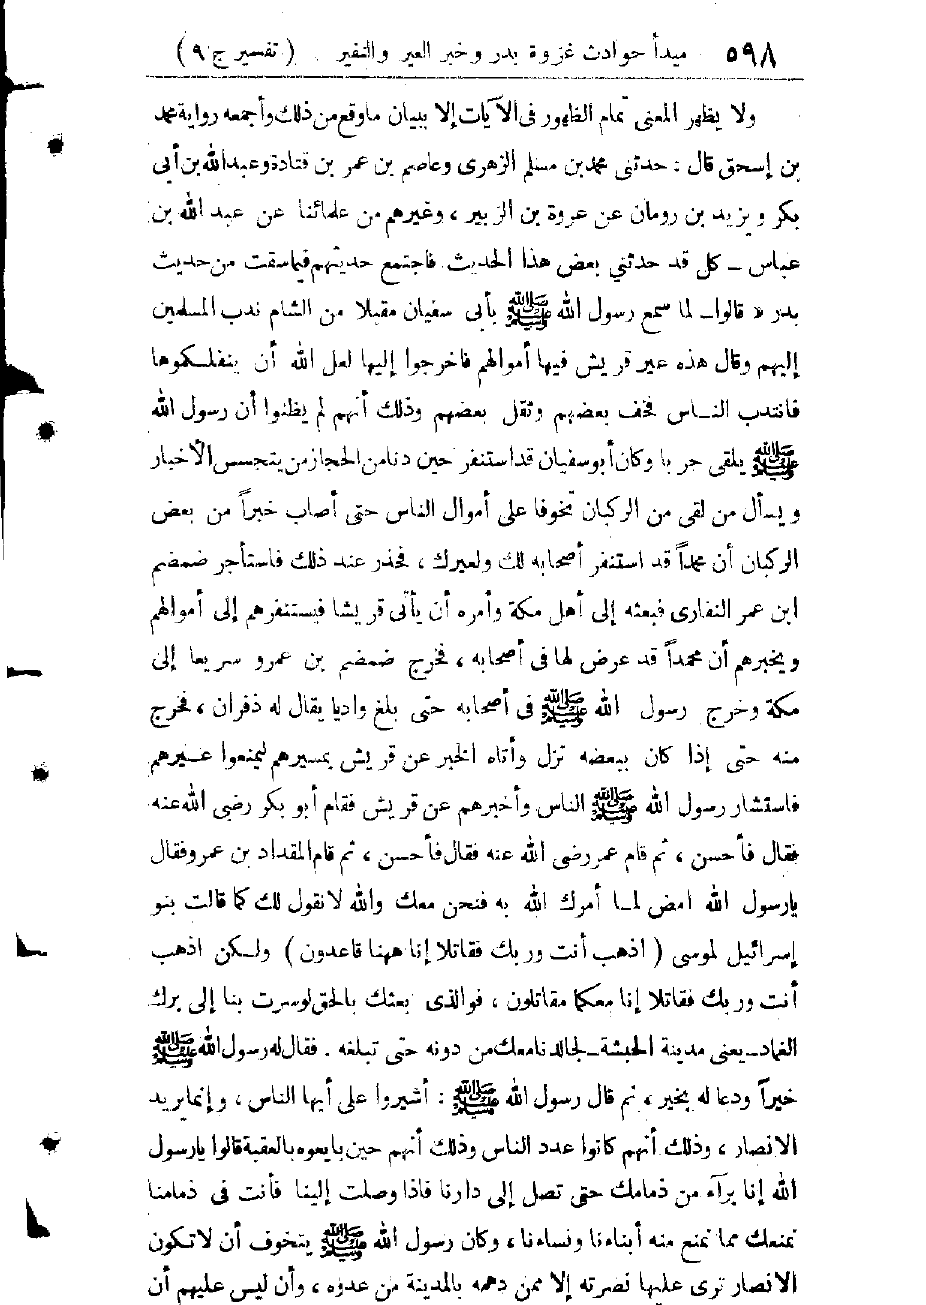 ٥٩٨ مبدأ حوادث غزوة بدر وخبر العير والنفير . ( تفسير ج ٩ )
ولا يظهر المعنى تمام الظهور فى الآيات إلا ببيان ماوقع من ذلك وأجمعه رواية محمد
بن إسحق قال : حدثنى محمد بن مسلم الزهرى وعاصم بن عمر بن قتادة وعبد الله بن أبي
بكر ويزيد بن رومان عن عروة بن الزبير ، وغيرهم من علمائنا عن عبد الله بن
عباس ــ كل قد حدثني بعض هذا الحديث فاجتمع حديثهم فيما سقت من حديث
بدر « قالوا ــ لما سمع رسول الله ﷺ بأبى سفيان مقبلا من الشام ندب المسلمين
إليهم وقال هذه عير قريش فيها أموالهم فاخرجوا إليها لعل الله أن ينفلكموها
فانتدب الناس فخف بعضهم وثقل بعضهم وذلك أنهم لم يظنوا أن رسول الله
ﷺ يلقى حربا وكان أبو سفيان قد استنفر حين دنا من الحجاز من يتجسس الأخبار
ويسأل من لقى من الركبان تخوفا على أموال الناس حتى أصاب خبراً من بعض
الركبان أن محمداً قد استنفر أصحابه لك ولعيرك ، فحذر عند ذلك فاستأجر ضمضم
ابن عمر الغفارى فبعثه إلى أهل مكة وأمره أن يأتى قريشا فيستنفرهم إلى أموالهم
ويخبرهم أن محمداً قد عرض لها فى أصحابه ، فخرج ضمضم بن عمرو سريعا إلى
مكة وخرج رسول الله ﷺ فى أصحابه حتى بلغ واديا يقال له ذفران ، فخرج
منه حتى إذا كان ببعضه نزل وأتاه الخبر عن قريش بمسيرهم ليمنعوا عيرهم
فاستشار رسول الله ﷺ الناس وأخبرهم عن قريش فقام أبو بكر رضى الله عنه
فقال فأحسن ، ثم قام عمر رضى الله عنه فقال فأحسن ، ثم قام المقداد بن عمرو فقال
يارسول الله امض لما أمرك الله به فنحن معك والله لانقول لك كما قالت بنو
إسرائيل لموسى ( اذهب أنت وربك فقاتلا إنا ههنا قاعدون ) ولكن اذهب
أنت وربك فقاتلا إنا معكما مقاتلون ، فوالذى بعثك بالحق لو سرت بنا إلى برك
الغماد ــ يعنى مدينة الحبشة ــ لجالدنا معك من دونه حتى تبلغه . فقال له رسول الله ﷺ
خيراً ودعا له بخير ، ثم قال رسول الله ﷺ : أشيروا على أيها الناس ، وإنما يريد
الانصار ، وذلك أنهم كانوا عدد الناس وذلك أنهم حين بايعوه بالعقبة قالوا يارسول
الله إنا برآء من ذمامك حتى تصل إلى دارنا فاذا وصلت إلينا فأنت فى ذمامنا
نمنعك مما نمنع منه أبناءنا ونساءنا ، وكان رسول الله ﷺ يتخوف أن لا تكون
الانصار ترى عليها نصرته إلا ممن دهمه بالمدينة من عدوه ، وأن ليس عليهم أن